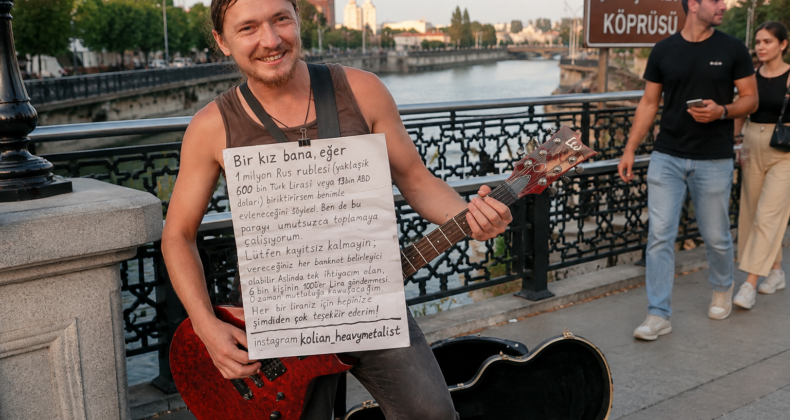 KÖPRÜSÜ
Bir kız bana, eğer
1 milyon Rus rublesi (yaklaşık
600 bin Türk Lirası veya 13bin ABD
doları) biriktirirsem benimle
evleneceğini söyledi. Ben de bu
parayı umutsuzca toplamaya
çalışıyorum.
Lütfen kayıtsız kalmayın;
vereceğiniz her banknot belirleyici
olabilir Aslında tek ihtiyacım olan,
6 bin kişinin 100'er Lira göndermesi.
O zaman mutluluğa kavuşacağım
Her bir liranız için hepinize
şimdiden çok teşekür ederim!
instagram kolian_heavymetalist